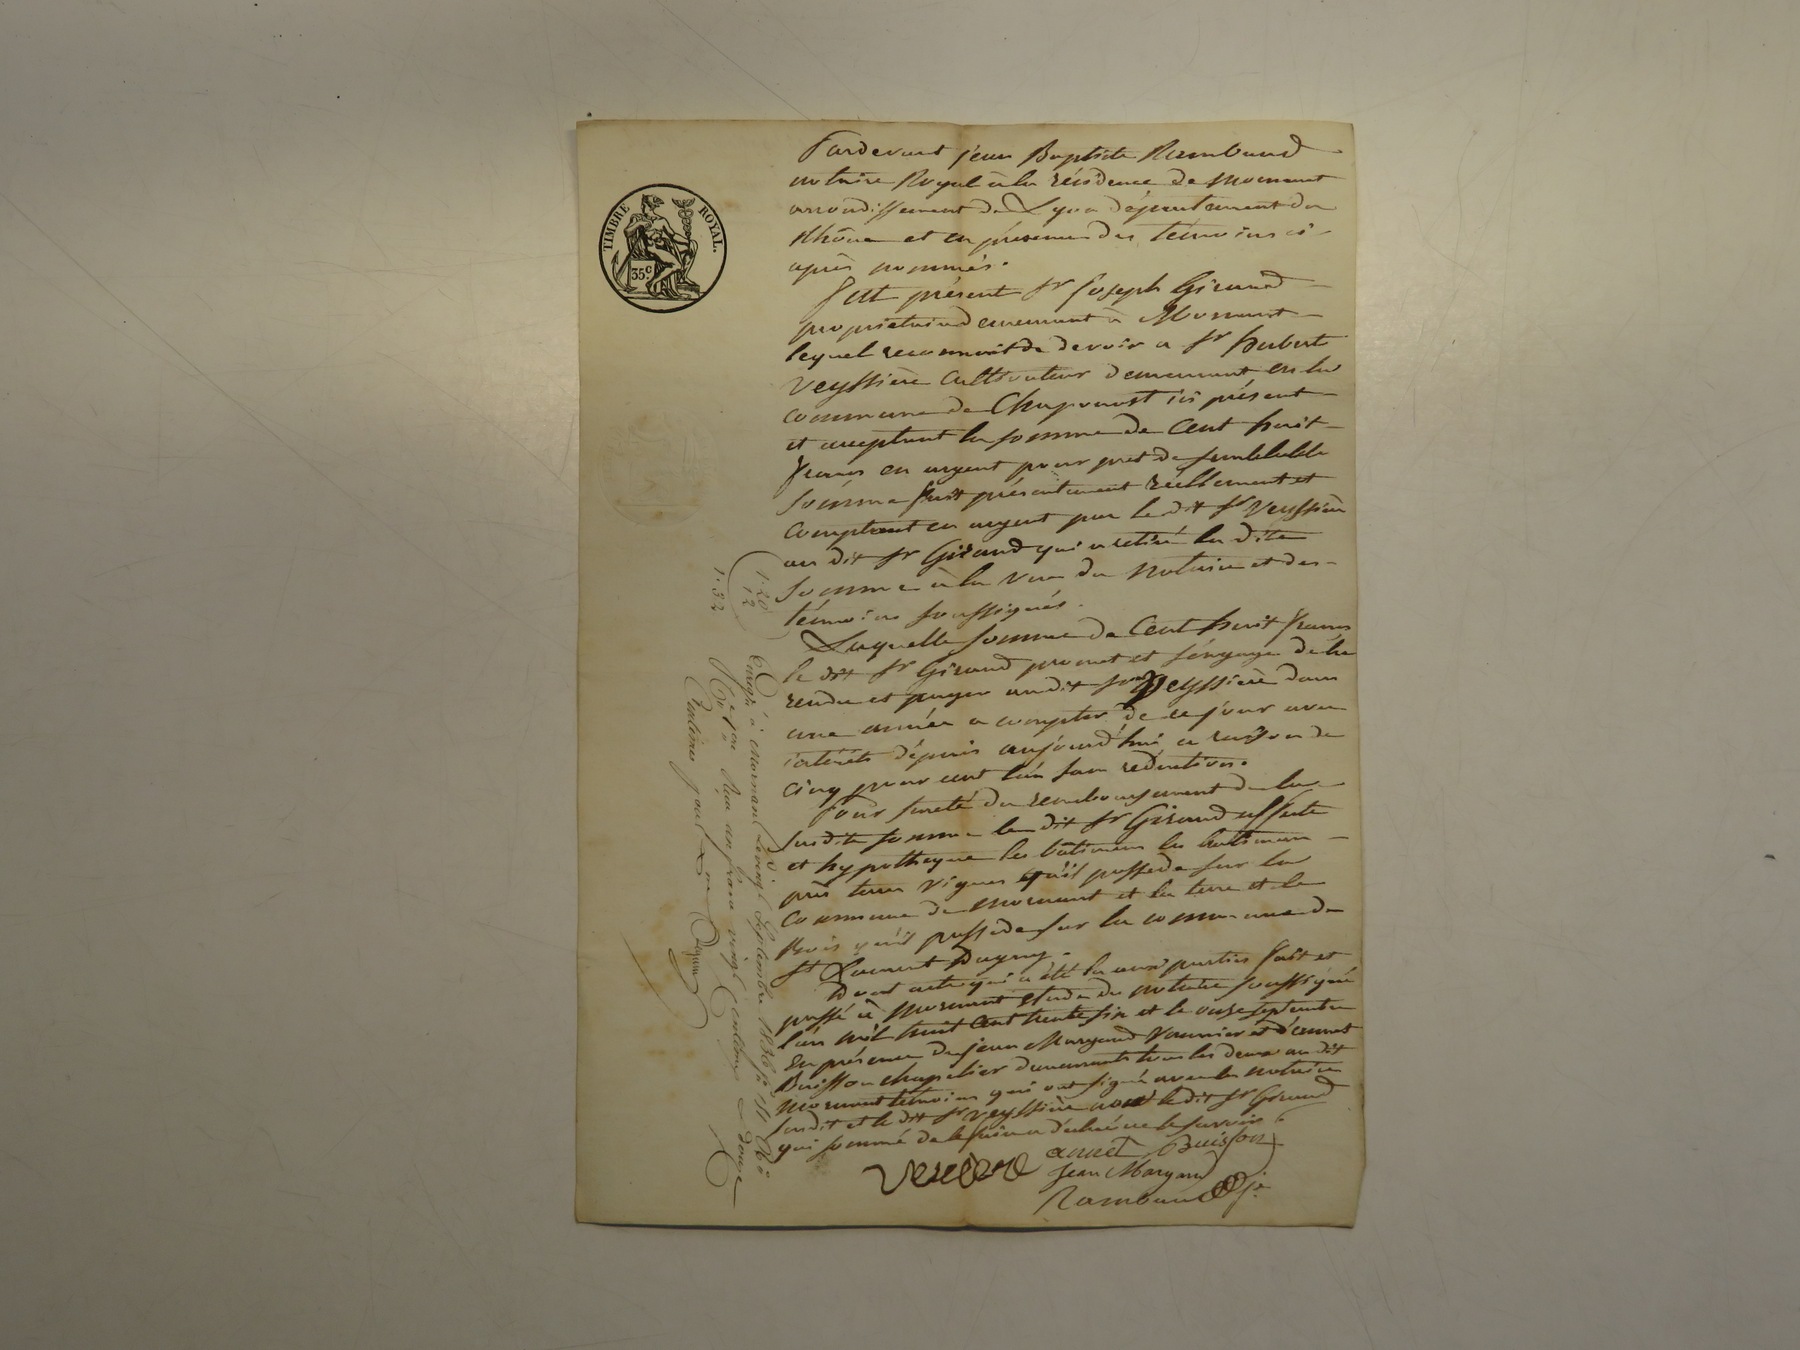 TIMBRE ROYAL.
35c.
Pardevant jean Baptiste Rambaud
notaire Royal à la résidence de Mornant
arrondissement de Lyon département du
Rhône et en présence des témoins ci-
après nommés.
fut présent Sr Joseph Giraud
propriétaire demeurant à Mornant
lequel reconnoit de devoir a Sr hubert
Veyssière Cultivateur demeurant en la
commune de Chaponost ici présent
et acceptant la somme de Cent huit
francs en argent pour pret de semblable
somme fait présentement réellement et
comptant en argent par le dit Sr Veyssière
au dit Sr Giraud qui a retiré la dite
somme à la vue du notaire et des
témoins soussignés.
Laquelle somme de Cent huit francs
le dit Sr Giraud promet et s'engage de la
rendre et payer au dit Sr Veyssière dans
une année a compter de ce jour avec
intérêts dépuis aujourd'hui a raison de
cinq pour cent l'an sans réduction.
Pour sureté du remboursement de la
susdite somme le dit Sr Giraud affecte
et hypotheque les bâtimens
prés terres vignes qu'il possede sur la
Commune de Mornant et la terre et le
Bois qu'il possede sur la commune de
St Laurent Dagny.
Dont acte qui a été lu aux parties fait et
passé à Mornant étude du notaire soussigné
l'an mil huit cent trente six et le onze septembre
En présence de jean Margand Vannier et d'annet
Buisson chapelier demeurants tous les deux au dit
Mornant témoins qui ont signé avec le notaire
susdit et le dit Sr Veyssière non le dit Sr Giraud
qui sommé de le faire a déclaré ne le savoir
annet Buisson
Jean Margand
Rambaud
1.20
12
1.32
Enregé à Mornant le vingt Septembre 1836 fo
Reçu un franc vingt centimes